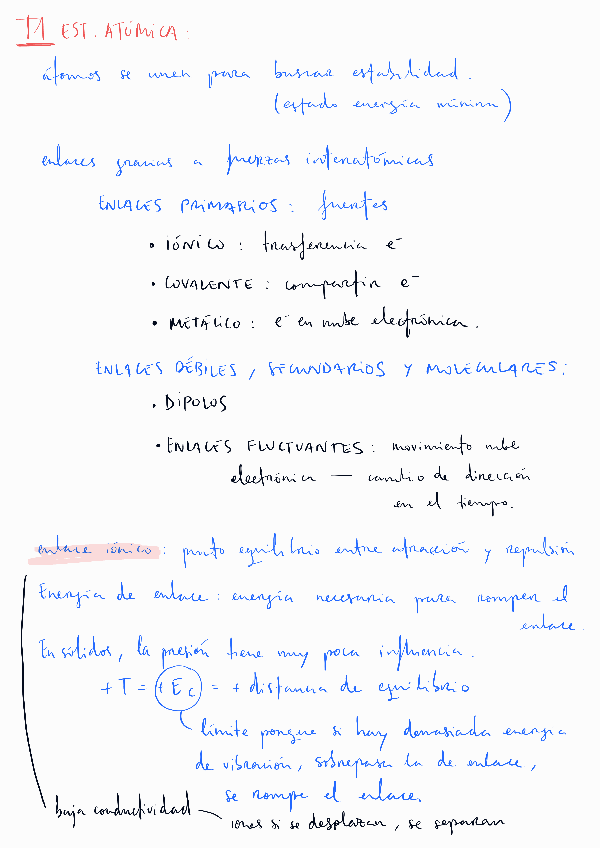 T1 EST. ATÓMICA.
átomos se unen para buscar estabilidad.
(estado energía mínima)
enlaces gracias a fuerzas interatómicas
ENLACES PRIMARIOS: fuertes
• IÓNICO: trasferencia e⁻
• COVALENTE: compartir e⁻
• METÁLICO: e⁻ en nube electrónica.
ENLACES DÉBILES, SECUNDARIOS Y MOLECULARES:
• DIPOLOS
• ENLACES FLUCTUANTES: movimiento nube
electrónica — cambio de dirección
en el tiempo.
enlace iónico: punto equilibrio entre atracción y repulsión
Energía de enlace: energía necesaria para romper el
enlace.
En sólidos, la presión tiene muy poca influencia.
+T = +Ec = + distancia de equilibrio
límite porque si hay demasiada energía
de vibración, sobrepasa la de enlace,
se rompe el enlace.
baja conductividad
iones si se desplazan, se separan